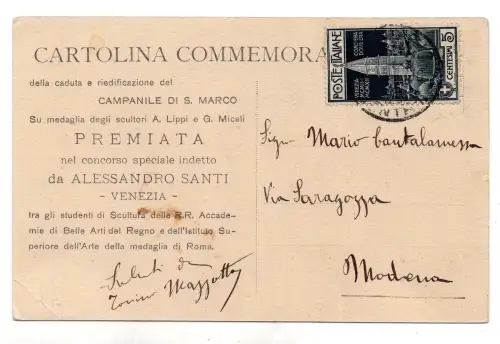 CARTOLINA COMMEMORA
della caduta e riedificazione del
CAMPANILE DI S. MARCO
Su medaglia degli scultori A. Lippi e G. Miceli
PREMIATA
nel concorso speciale indetto
da ALESSANDRO SANTI
- VENEZIA -
tra gli studenti di Scultura delle R.R. Accade-
mie di Belle Arti del Regno e dell'Istituto Su-
periore dell'Arte della medaglia di Roma.
Saluti da
Mazzotto
POSTE ITALIANE
VENEZIA
CENTESIMI 5
Sigr Mario Cantalamessa
Via Saragozza
Modena